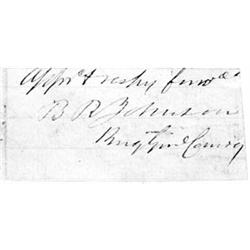 Appd & respy forwd
B R Johnson
Brig Genl Comdg